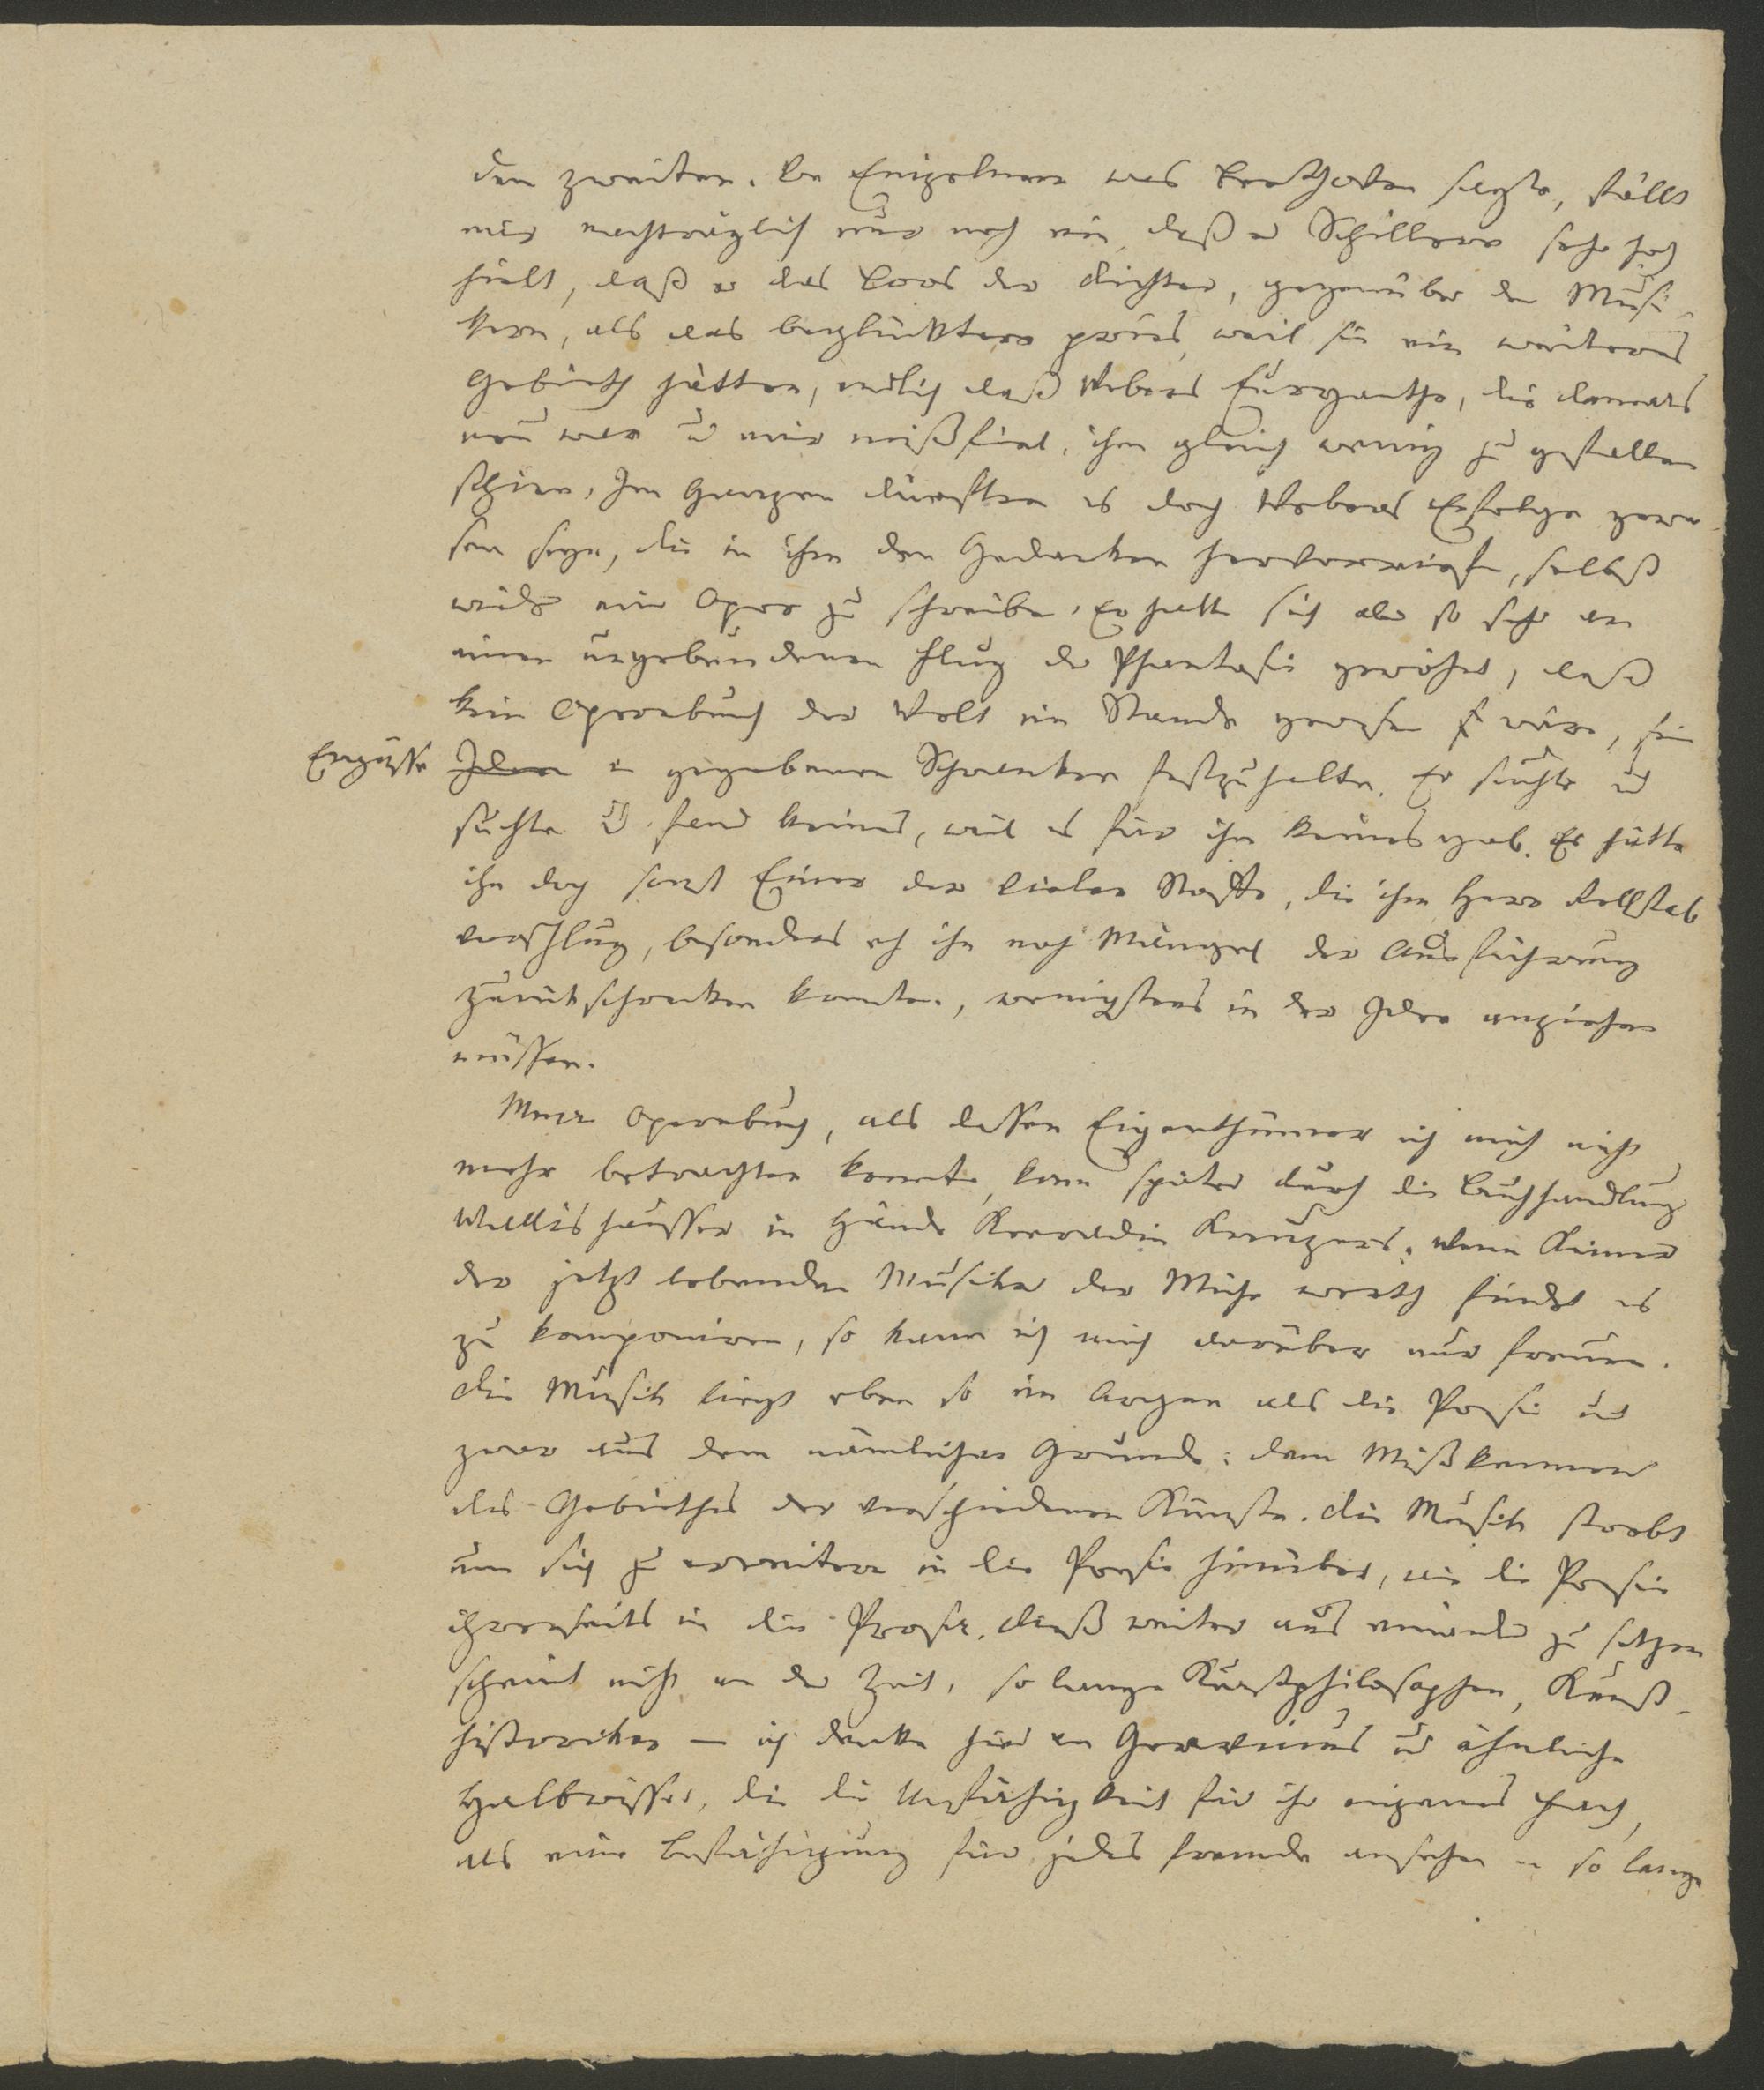 den zweiten. Von Einzelnem was Beethoven sagte, fällt
mir nachträglich nur noch ein, daß er Schillern sehr hoch
hielt, daß er das Loos der Dichter, gegenüber den Musi-
kern, als das beglücktere pries, weil sie ein weiteres
Gebieth hätten, endlich daß Webers Euryanthe, die damals
neu war u mir mißfiel, ihm gleich wenig zu gefallen
schien. Im Ganzen dürften es doch Webers Erfolge gewe-
sen seyn, die in ihm den Gedanken hervorriefen, selbst
wieder eine Oper zu schreiben. Er hatte sich aber so sehr an
einen ungebundenen Flug der Phantasie gewöhnt, daß
kein Opernbuch der Welt im Stande gewesen wäre, seine
Ergüsse Ideen in gegebenen Schranken festzuhalten. Er suchte und
suchte u fand keines, weil es für ihn keines gab. Es hätte
ihn doch sonst Einer der vielen Stoffe, die ihm Herr Rellstab
vorschlug, besonders eh ihn noch Mängel der Ausführung
zurückschrecken konnten, wenigstens in der Idee anziehen
müssen.
Mein Opernbuch, als dessen Eigenthümer ich mich nicht
mehr betrachten konnte, kam später durch die Buchhandlung
Wallishausser in Hände Konradin Kreuzers. Wenn Keiner
der jetzt lebenden Musiker der Mühe werth findet es
zu komponiren, so kann ich mich darüber nur freuen.
Die Musik liegt eben so im Argen als die Poesie und
zwar aus dem nämlichen Grunde: dem Mißkennen
des Gebiethes der verschiedenen Künste. Die Musik strebt
um sich zu erweitern in die Poesie hinüber, wie die Poesie
ihrerseits in die Prosa. Dieß weiter aus einander zu setzen
scheint nicht an der Zeit, so lange Kunstphilosophen, Kunst-
historiker – ich denke hier an Gervinus und ähnliche
Halbwisser, die die Unfähigkeit für ihr eigenes Fach,
als eine Befähigung für jedes fremde ansehen – so lange